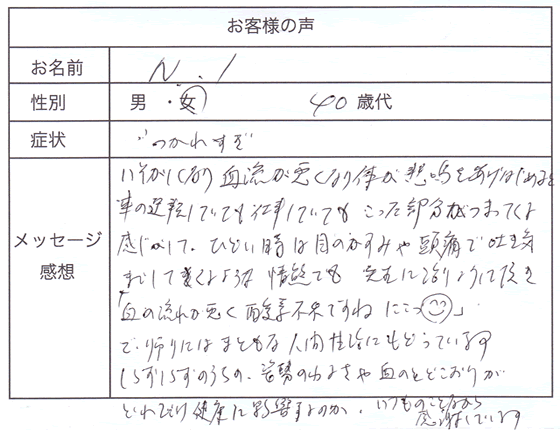 お客様の声
お名前 N.I
性別 男・女 40歳代
症状 つかれすぎ
メッセージ
感想
いそがしくなり血流が悪くなり体が悲鳴をあげはじめると
車の運転していても仕事していてもこった部分がつまってくる
感じがして、ひどい時は目のかすみや頭痛で吐き気
までしてくるような状態でも 完全に治るように頂き
「血の流れが悪く酸素不足ですね にこっ」
で、帰りにはまともな人間生活にもどっています
しらずしらずのうちの、姿勢のわるさや血のとどこおりが
どれだけ健康に影響するのか、いつものことながら
感謝しています